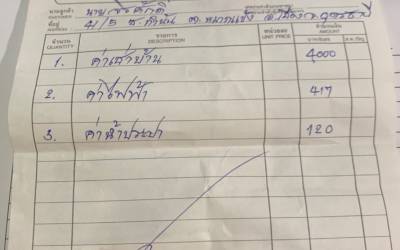 นามลูกค้า นายจีรศักดิ์
ที่อยู่ 41/5 ถ. ต.หมากแข้ง อ.เมือง จ.อุดรธานี
จำนวน รายการ หน่วยละ จำนวนเงิน
QUANTITY DESCRIPTION UNIT PRICE AMOUNT
1. ค่าเช่าบ้าน 4000
2. ค่าไฟฟ้า 417
3. ค่าน้ำประปา 120